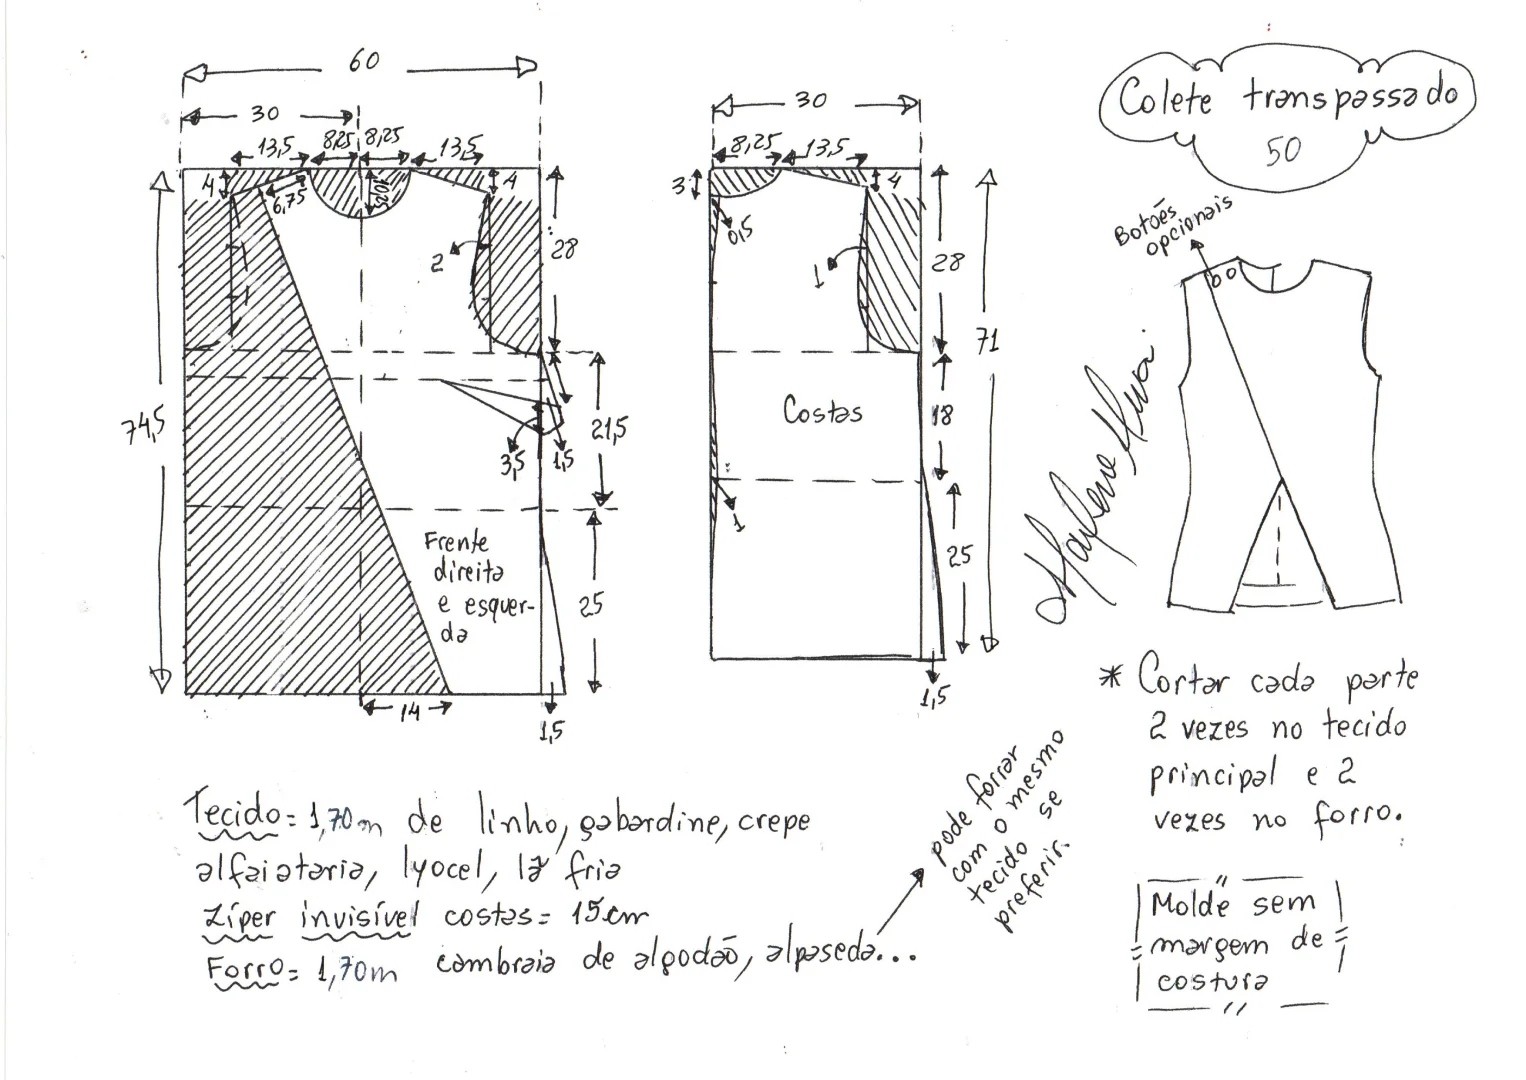 Colete transpassado
50
60
30
13,5
8,25
8,25
13,5
4
6,75
4
2
28
74,5
21,5
3,5
1,5
Frente
direita
e esquer-
da
25
14
1,5
30
8,25
13,5
3
4
0,5
1
28
71
Costas
18
1
25
1,5
Botões
opcionais
* Cortar cada parte
2 vezes no tecido
principal e 2
vezes no forro.
Molde sem
margem de
costura
Tecido = 1,70m de linho, gabardine, crepe
alfaiataria, lyocel, lã fria
Zíper invisível costas = 15cm
Forro = 1,70m cambraia de algodão, alpaseda...
pode forrar
com o mesmo
tecido se
preferir.